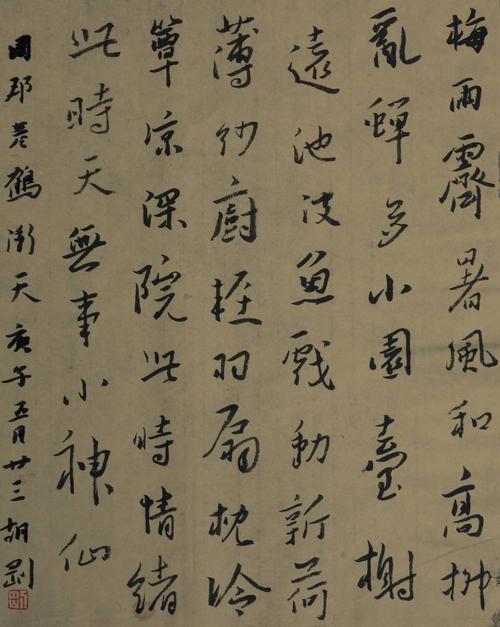 梅雨霽暑風和高柳
亂蟬多小園臺榭
遠池波魚戲動新荷
薄紗廚輕羽扇枕冷
簟凉深院此時情緒
此時天無事小神仙
周邦彥鶴衝天庚午五月廿三胡剛